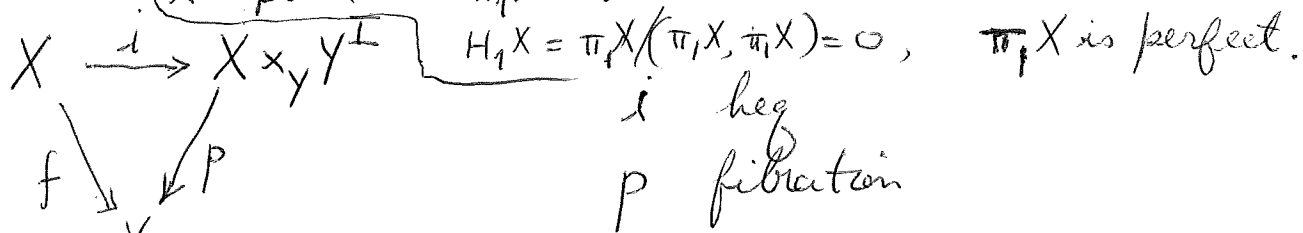 X →i X ×_Y Y^I    H_1 X = π_1 X/(π_1 X, π_1 X) = 0,    π_1 X is perfect.
i    heq
f    p    p    fibration
Y